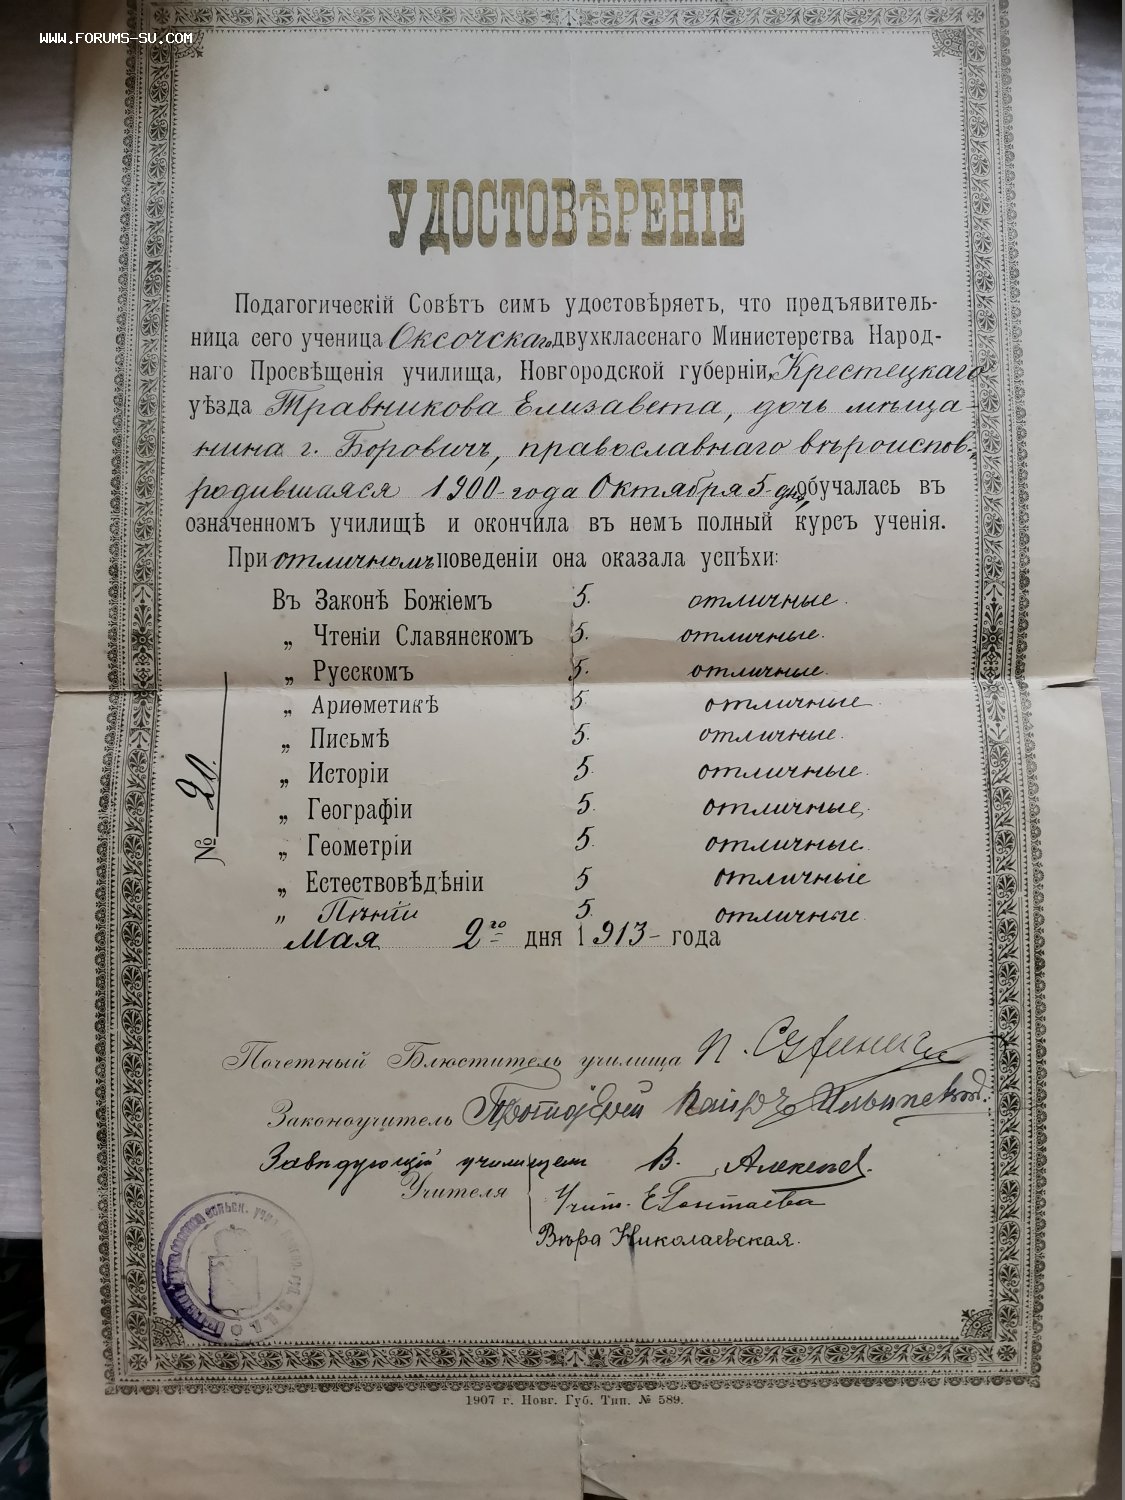 WWW.FORUMS-SU.COM
УДОСТОВѢРЕНІЕ
Подагогическій Совѣтъ симъ удостовѣряетъ, что предъявитель-
ница сего ученица Оксочскаго двухкласснаго Министерства Народ-
наго Просвѣщенія училища, Новгородской губерніи, Крестецкаго
уѣзда Травникова Елизавета, дочь мѣща-
нина г. Боровичъ, православнаго вѣроиспов.,
родившаяся 1900-года Октября 5-дня, обучалась въ
означенномъ училищѣ и окончила въ немъ полный курсъ ученія.
При отличномъ поведеніи она оказала успѣхи:
Въ Законѣ Божіемъ 5. отличные.
„ Чтеніи Славянскомъ 5. отличные.
„ Русскомъ 5. отличные.
„ Ариѳметикѣ 5. отличные.
„ Письмѣ 5. отличные.
„ Исторіи 5. отличные.
„ Географіи 5. отличные.
„ Геометріи 5. отличные.
„ Естествовѣдѣніи 5 отличные
„ Пѣніи 5. отличные.
№ 20.
Мая 2го дня 1913- года
Почетный Блюститель училища П.
Законоучитель Протоіерей Ильинскій.
Завѣдующій училищемъ В. Алексѣев.
Учителя Учит. Е.
Вѣра Николаевская.
1907 г. Новг. Губ. Тип. № 589.